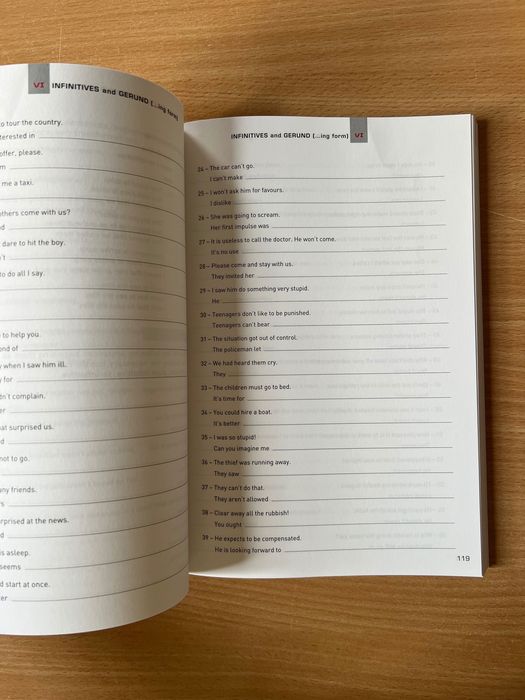 VI INFINITIVES and GERUND (...ing form)
o tour the country.
terested in
offer, please.
m
me a taxi.
others come with us?
d
dare to hit the boy.
't
to do all I say.
to help you.
ond of
when I saw him ill.
for
n't complain.
er
at surprised us.
d
not to go.
any friends.
s
rprised at the news.
d
is asleep.
seems
d start at once.
er
INFINITIVES and GERUND (...ing form) VI
24 - The car can't go.
I can't make
25 - I won't ask him for favours.
I dislike
26 - She was going to scream.
Her first impulse was
27 - It is useless to call the doctor. He won't come.
It's no use
28 - Please come and stay with us.
They invited her
29 - I saw him do something very stupid.
He
30 - Teenagers don't like to be punished.
Teenagers can't bear
31 - The situation got out of control.
The policeman let
32 - We had heard them cry.
They
33 - The children must go to bed.
It's time for
34 - You could hire a boat.
It's better
35 - I was so stupid!
Can you imagine me
36 - The thief was running away.
They saw
37 - They can't do that.
They aren't allowed
38 - Clear away all the rubbish!
You ought
39 - He expects to be compensated.
He is looking forward to
119